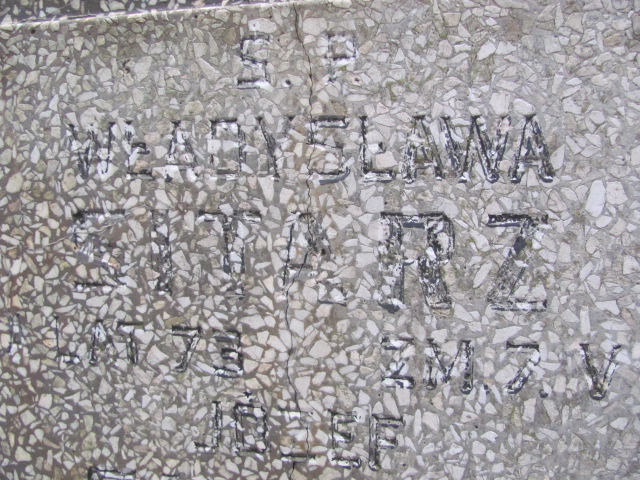 Ś. P.
WŁADYSŁAWA
SITARZ
LAT 73 ZM. 7. V
JÓZEF